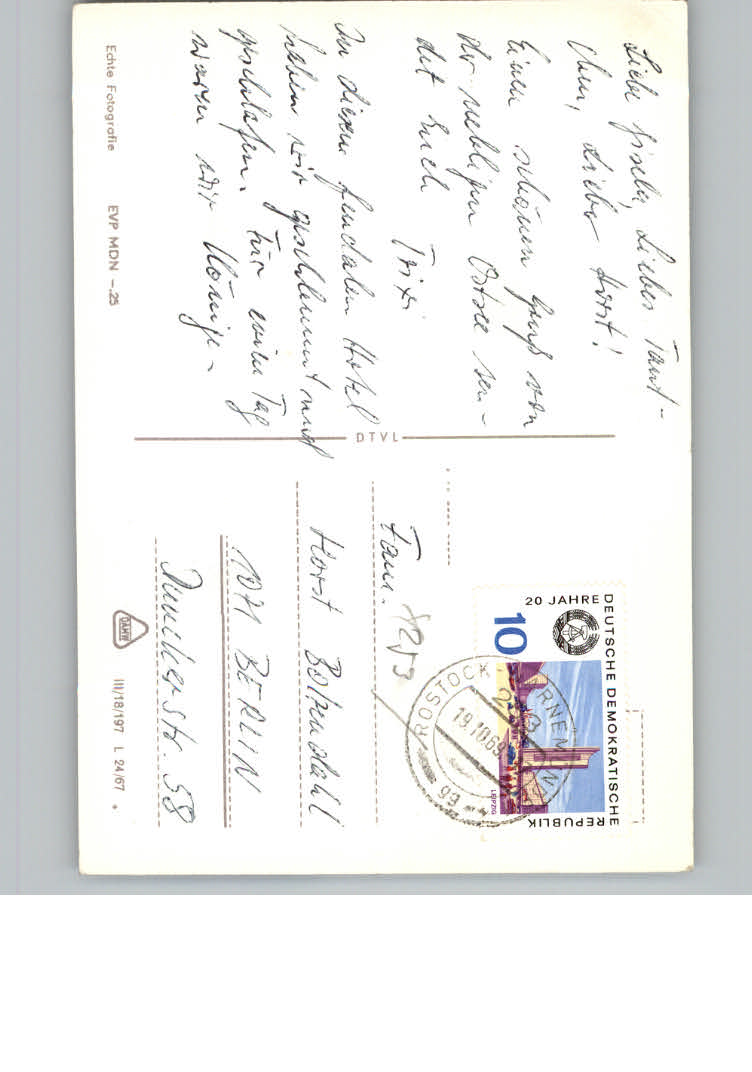 Liebe Gisela, Liebes Tant-
chen, Lieber Horst!
Einen schönen Gruß von
der nebligen Ostsee sen-
det Euch
Trixi
In diesem feudalen Hotel
haben wir geschlemmt und
geschlafen. Für einen Tag
waren wir Könige –
Echte Fotografie EVP MDN –.25
DTVL
20 JAHRE DEUTSCHE DEMOKRATISCHE REPUBLIK
10
LEIPZIG
ROSTOCK
19.10.69
99
Fam.
Horst
1071 BERLIN
Dunckerstr. 58
DAMW
III/18/197 L 24/67 *